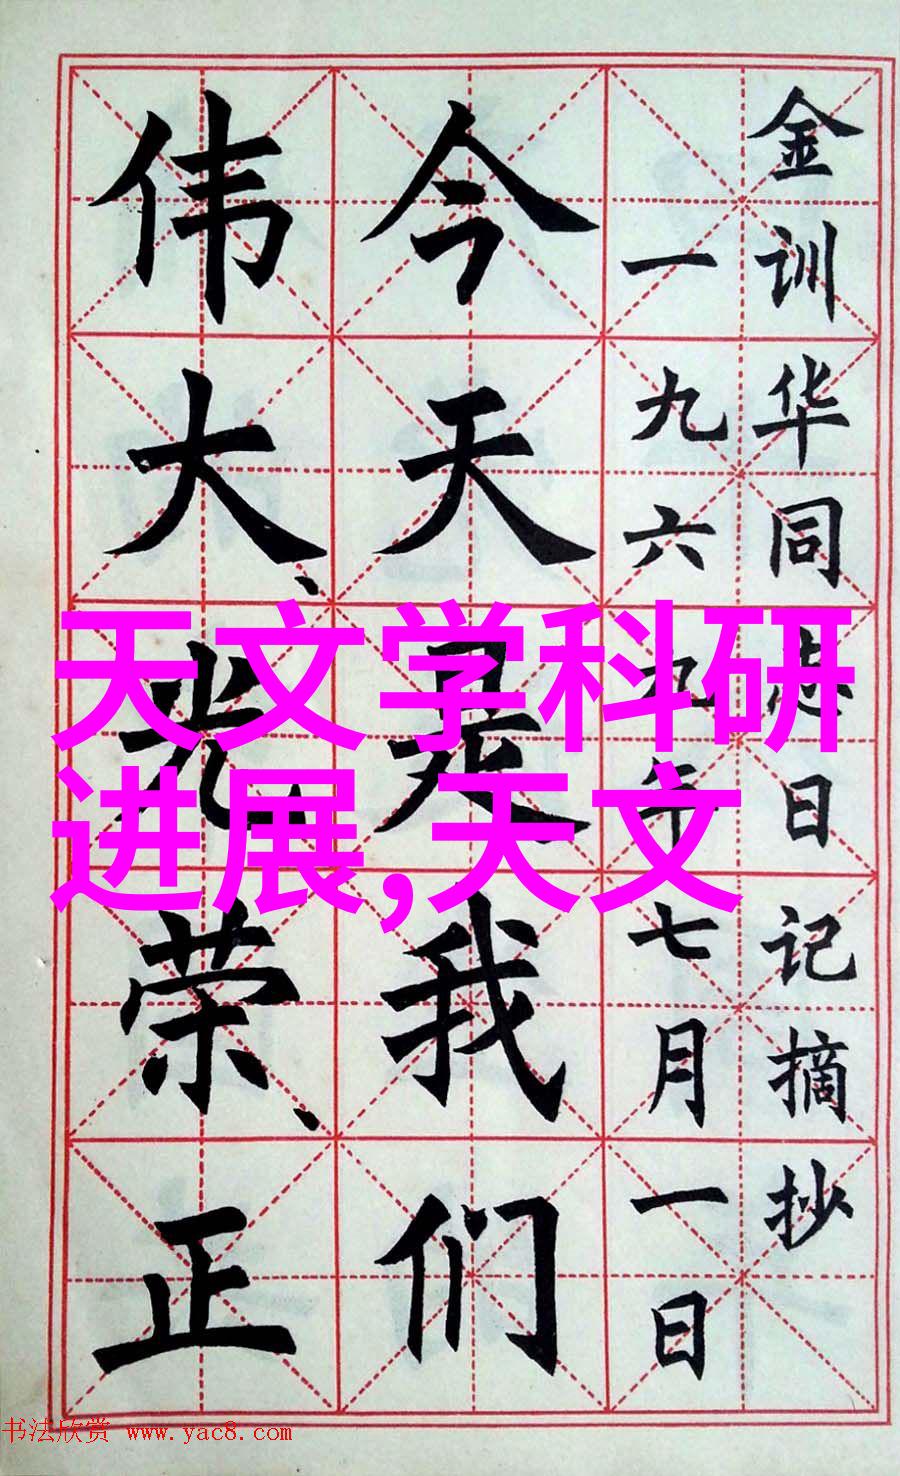 金训华同志日记摘抄
一九六九年七月一日
今天是我们
伟大、光荣、正
天文学科研
进展,天文
书法欣赏 www.yac8.com